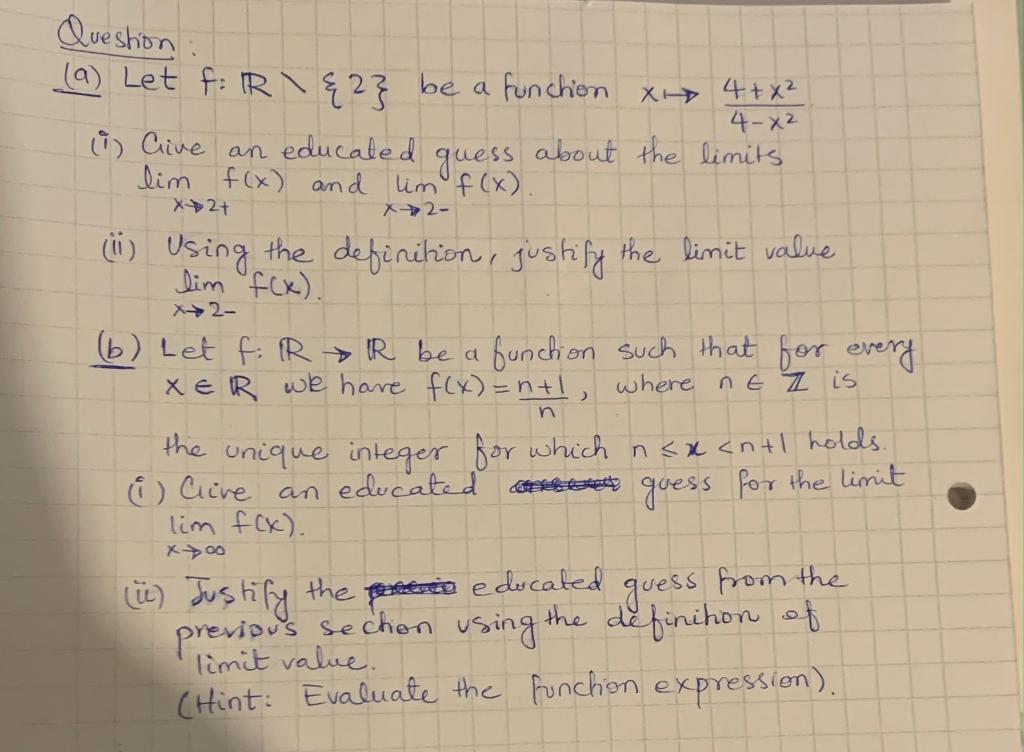 Question :
(a) Let f: ℝ \ {2} be a function x ↦ (4+x²)/(4-x²)
(i) Give an educated guess about the limits
lim f(x) and lim f(x).
x→2+ x→2-
(ii) Using the definition, justify the limit value
lim f(x).
x→2-
(b) Let f: ℝ → ℝ be a function such that for every
x ∈ ℝ we have f(x) = (n+1)/n, where n ∈ ℤ is
the unique integer for which n ≤ x < n+1 holds.
(i) Give an educated guess for the limit
lim f(x).
x→∞
(ii) Justify the educated guess from the
previous section using the definition of
limit value.
(Hint: Evaluate the function expression).